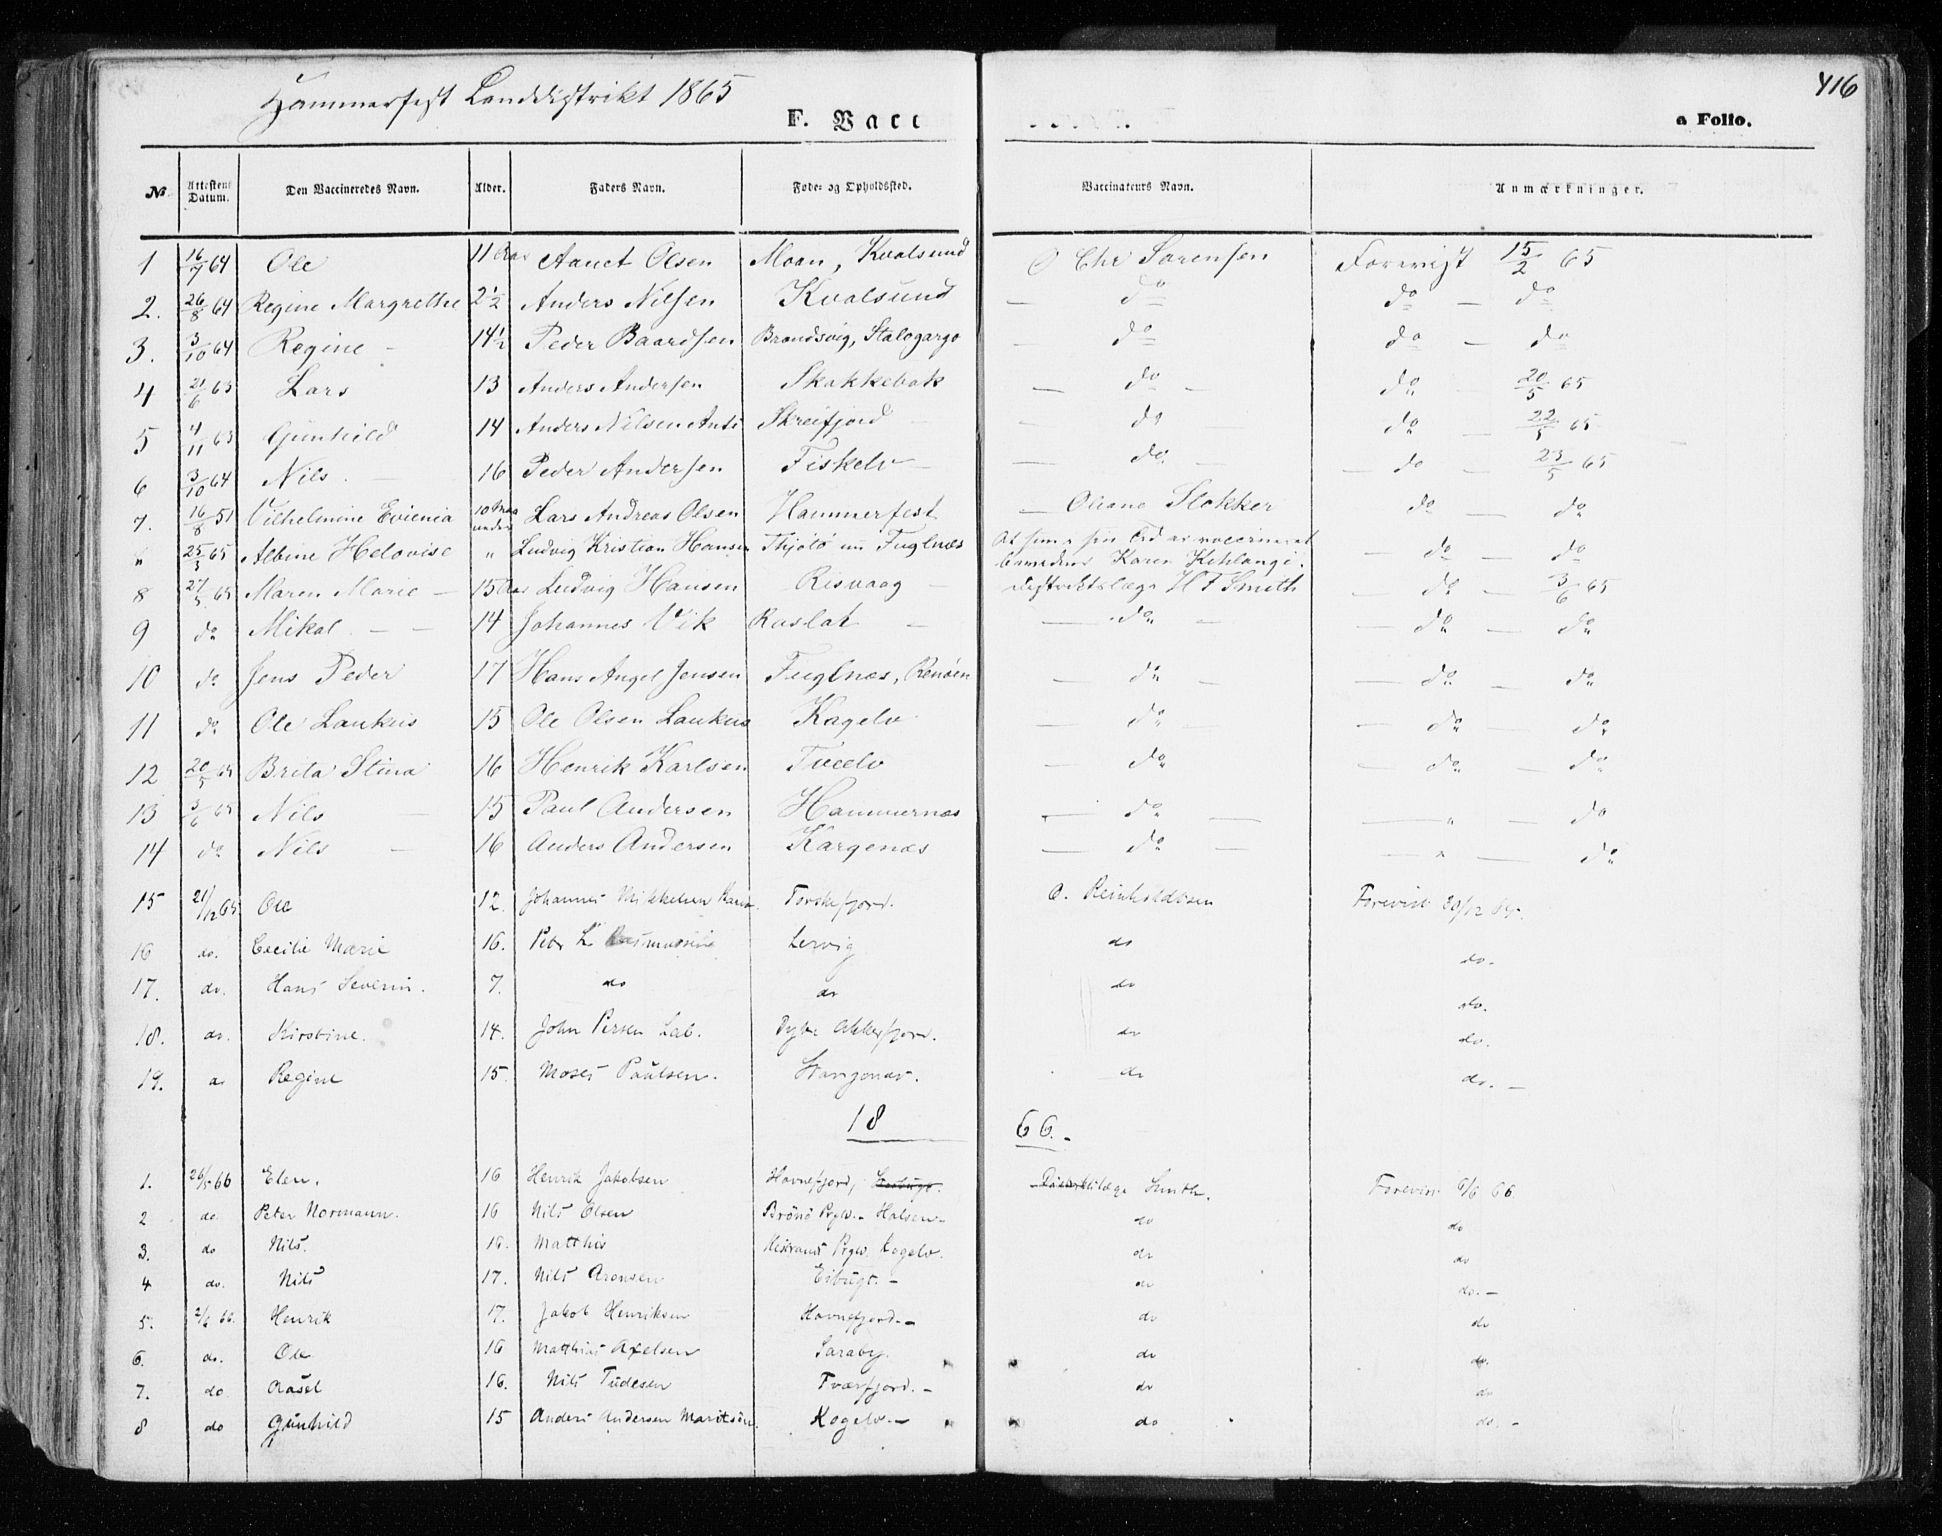 Hammerfest Landdistrikt 1865
416
F. Vacc
a Folio.
No. Attestens Datum. Den Vaccineredes Navn. Alder. Faders Navn. Føde- og Opholdssted. Vaccinateurs Navn. Anmærkninger.
1 16/7 64 Ole 11 Aar Olsen Moan, Kvalsund Chr Sørensen Forevist 15/2 65
2. 26/8 64 Regine Margrethe 2 1/2 Anders Nilsen Kvalsund — do do — do
3. 3/10 64 Regine — 14 1/2 Peder Baardsen Brandsvig, Stalogargo — do do — do
4 21/6 63 Lars 13 Anders Andersen Skakkebak — do — do — 20/5 65
5 4/11 63 Gunhild 14 Anders Nilsen Anti Skreifjord — — do do — 22/5 65
6 3/10 64 Nils. — 16 Peder Andersen Fiskelv — — do — — do — 23/5 65
7. 16/8 51 Vilhelmine Evienia 10 Maa under Lars Andreas Olsen Hammerfest — Oliane Slokker do — do
" 25/3 65 Albine Helovise " Ludvig Kristian Hansen Fuglnæs Karen — do — do
8 27/5 65 Maren Marie — 15 Aar Ludvig Hansen Risvaag — Distriktslæge H F Smith — do — 3/6 65
9 do Mikal — — 14 Johannes Vik Raslat — — do — — do — do
10 do Jens Peder 17 Hans Angel Jensen Fuglnæs, Renøen — do — — do — do
11 do Ole Laukus 15 Ole Olsen Laukus Kagelv — do — — do — do
12 20/5 65 Brita Stina 16 Henrik Karlsen Tveelv — do — do — do
13 3/6 65 Nils — 15 Paul Andersen Hammernæs — do — — " — do
14 do Nils — 16 Anders Andersen Kargenæs — do — — " — do
15 21/12 65 Ole 12. Johannes Mikkelsen Torskefjord. O. Reinholdtsen Forevist 30/12 65.
16 do. Cecilie Marie 16. Peder L. Rasmussen Lervig do do.
17. do. Hans Severin. 7. do do do do.
18. do. Kirstine. 14. John Persen Lab. Akkerfjord. do do.
19. do Regine 15. Moses Paulsen. do do. —
18 66.-
1. 26/5 66 Elen. 16 Henrik Jakobsen Havnefjord, Distriktslæge Smith. Forevist 6/6 66.
2 do. Peter Normann. 16 Nils Olsen Brønø Prgld. - Halsen - do do
3. do Nils. 16. Matthis Kistrand Prgld. Kogelv. do do
4 do. Nils 17. Nils Aronsen Eibugt. - do do. -
5. 2/6 66. Henrik 17. Jakob Henriksen Havnefjord. - do do
6. do. Ole 16 Matthias Axelsen Saraby. do do.
7. do Aasel 16. Nils Tudesen Tværfjord. - do do
8 do Gunhild 15 Anders Andersen Maritson. Kogelv. - do do. -